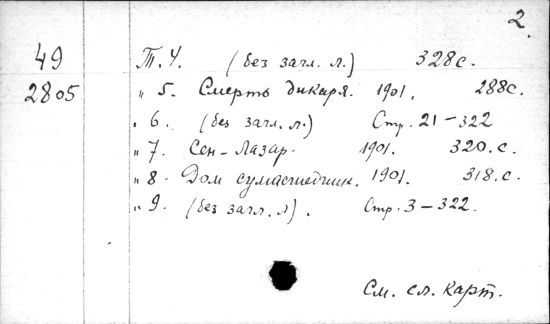 2.
49 Т. 4. (без загл. л.) 328 с.
2805 " 5. Смерть дикаря. 1901. 288 с.
" 6. (без загл. л.) Стр. 21–322
" 7. Сен-Лазар. 1901. 320. с.
" 8. Дом сумасшедших. 1901. 318. с.
" 9. (без загл. л). Стр. 3–322.
См. сл. карт.